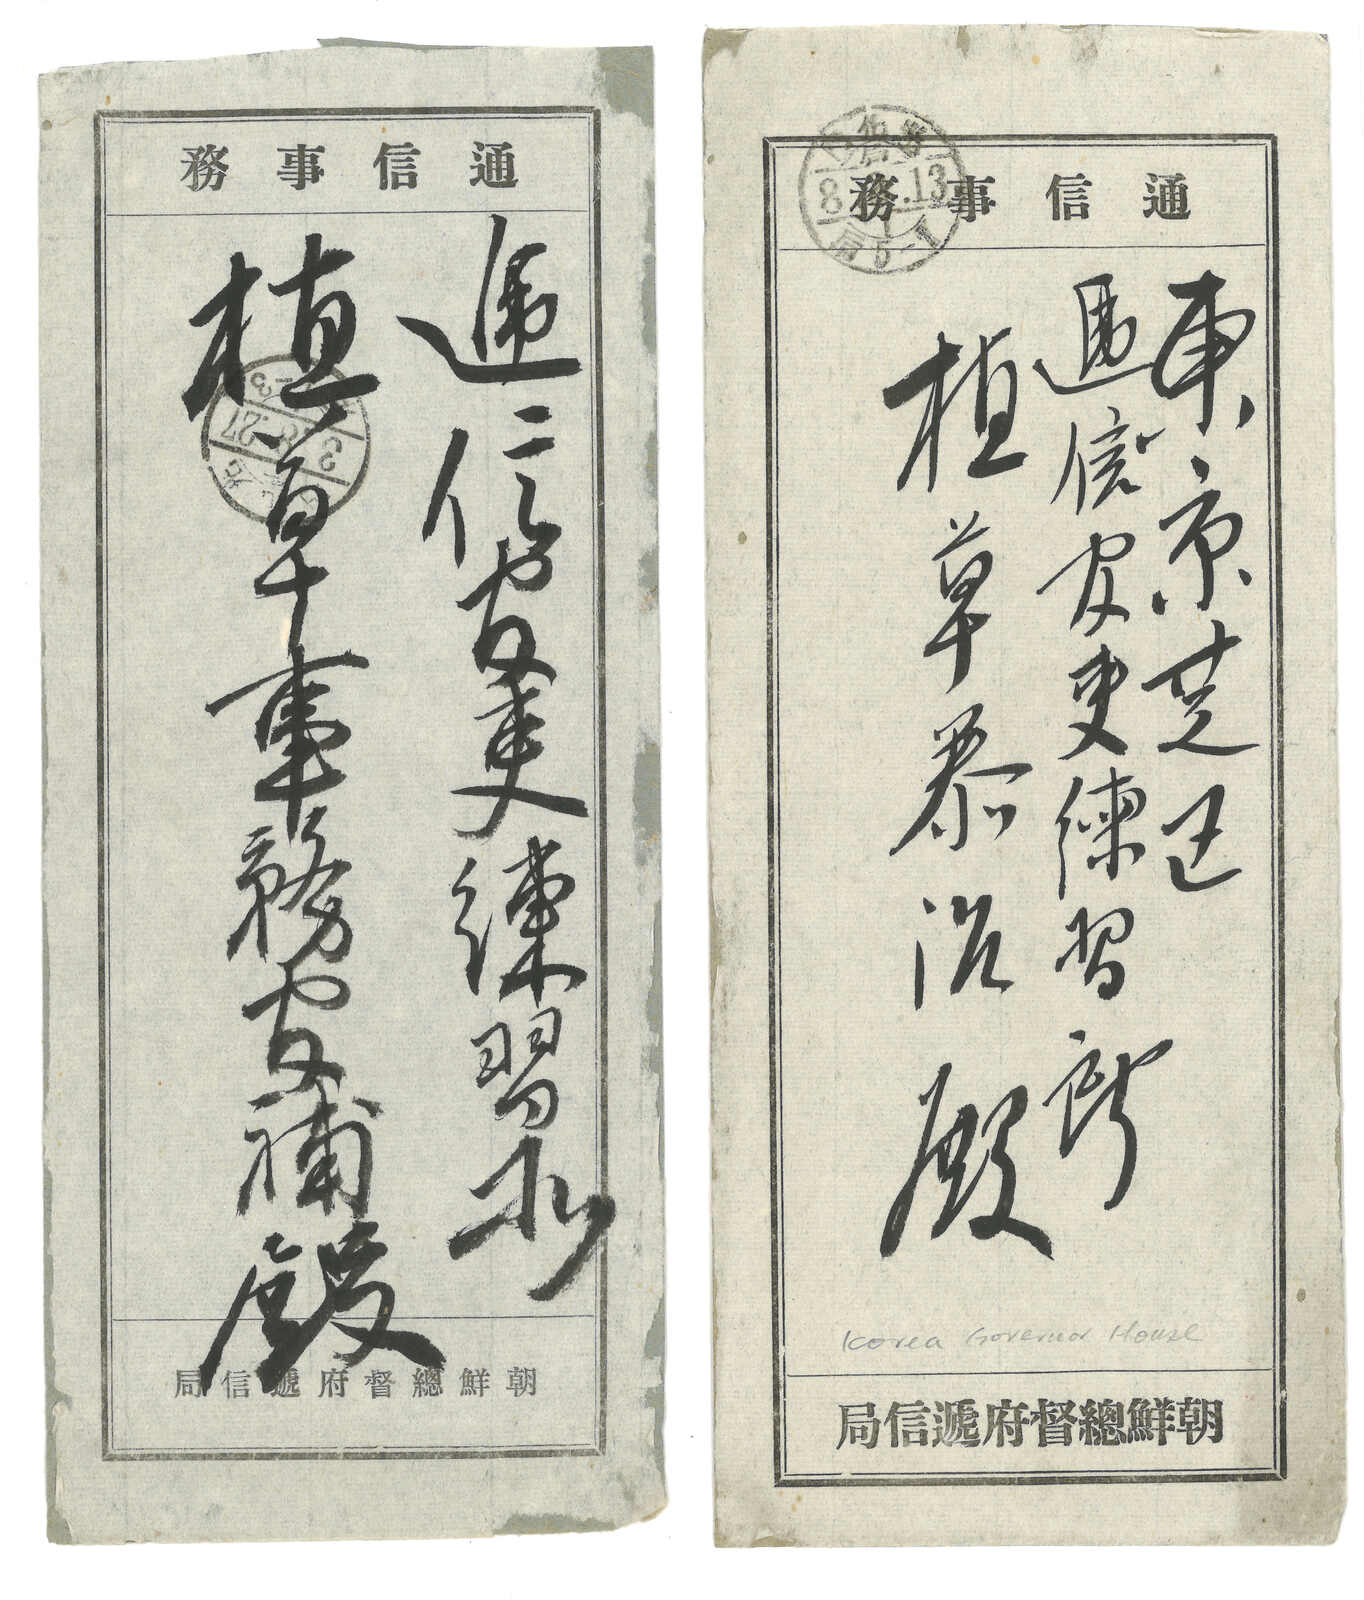 通信事務
逓信官吏練習所
植草事務官補殿
3.8.27
朝鮮總督府遞信局
通信事務
東京芝区
逓信官吏練習所
植草治殿
Korea Governor House
朝鮮總督府遞信局